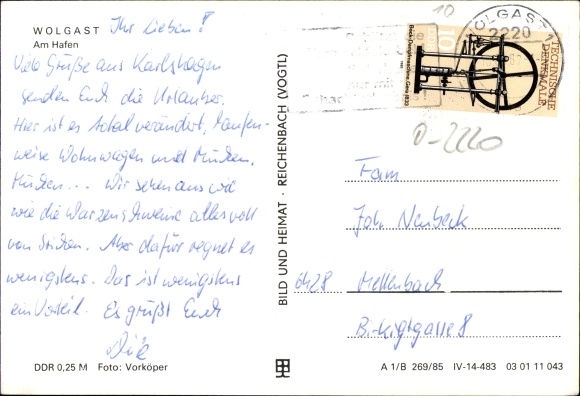 WOLGAST
Am Hafen
Ihr Lieben!
Viele Grüße aus Karlshagen
senden Euch die Urlauber.
Hier ist es total verändert, haufen-
weise Wohnwagen und Mücken,
Mücken... Wir sehen aus wie
wie die Warzenschweine alles voll
von Stichen. Aber dafür regnet es
wenigstens. Das ist wenigstens
ein Vorteil. Es grüßt Euch
DDR 0,25 M Foto: Vorköper
BILD UND HEIMAT · REICHENBACH (VOGTL)
10
WOLGAST 1
2220
10
TECHNISCHE
DENKMALE
DDR
D-2220
Fam
Joh. Neubeck
6428 Mellenbach
Birkigtgasse 8
A 1/B 269/85 IV-14-483 03 01 11 043